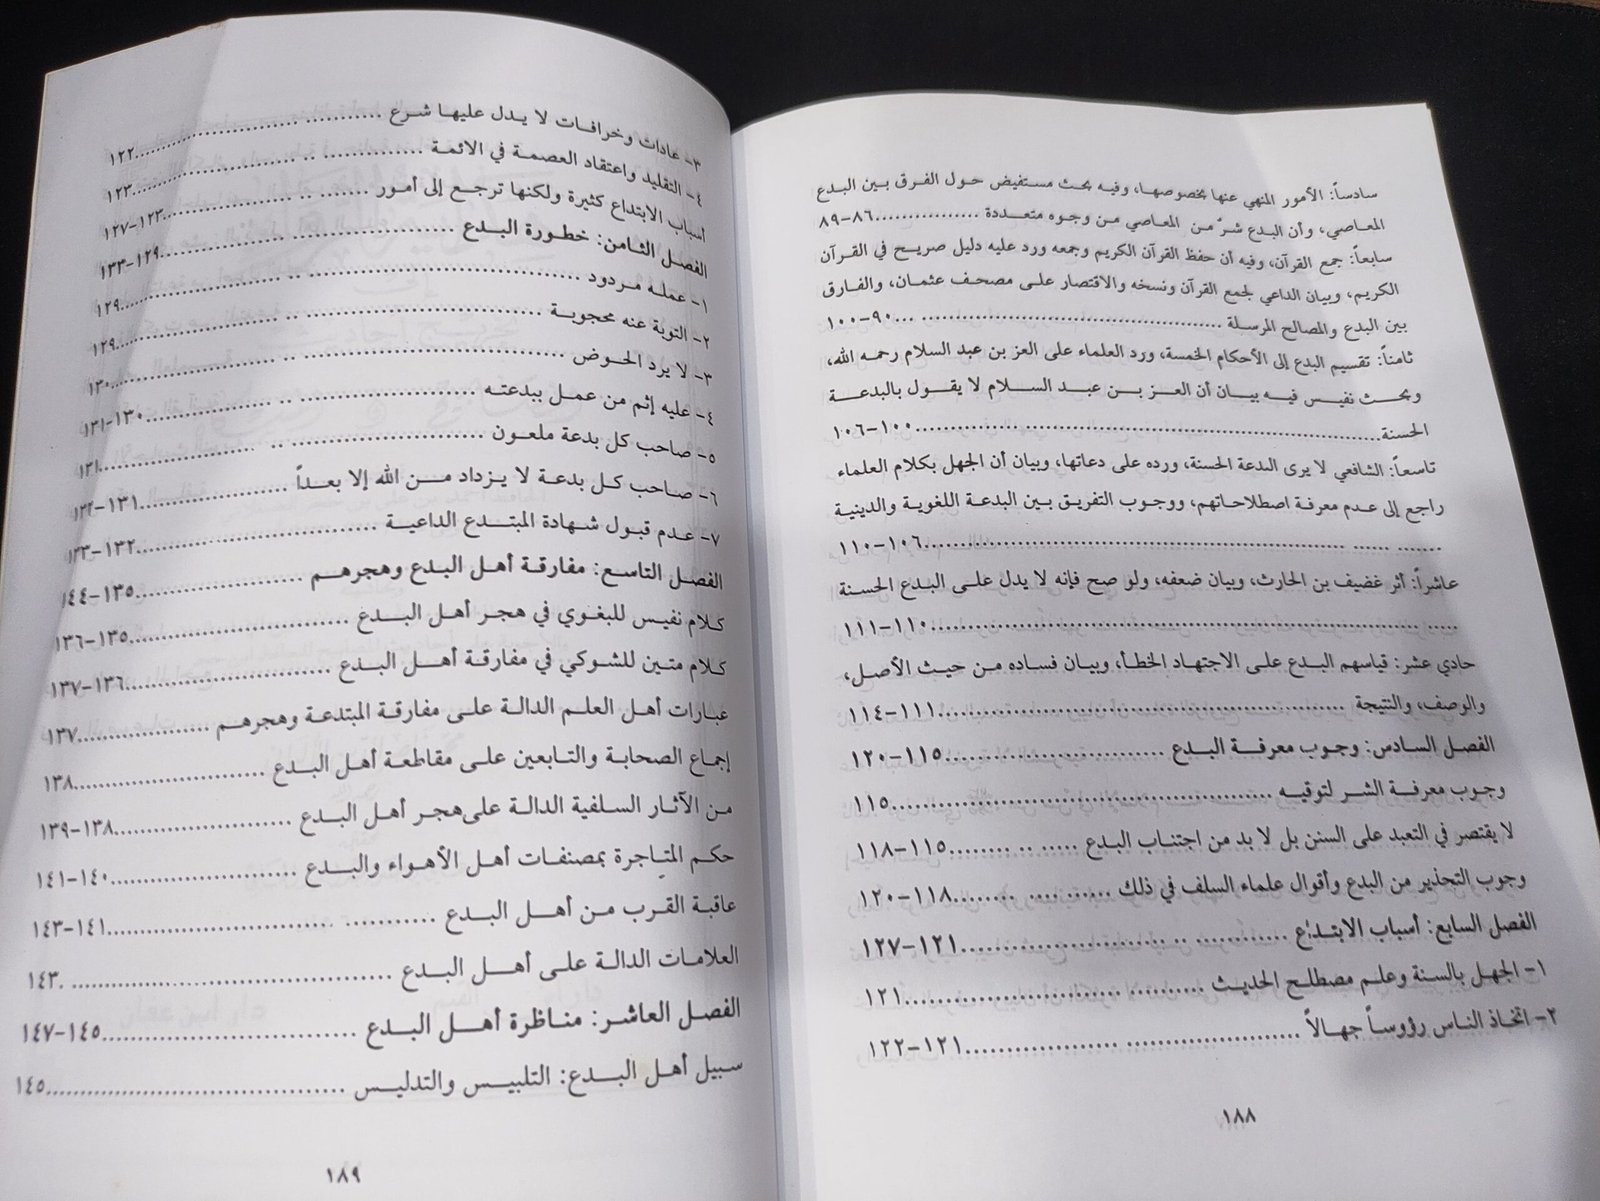 سادساً: الأمور المنهي عنها بخصوصها، وفيه بحث مستفيض حول الفرق بين البدع
المعاصي، وأن البدع شرٌ من المعاصي من وجوه متعددة ................٨٦-٨٩
سابعاً: جمع القرآن، وفيه أن حفظ القرآن الكريم وجمعه ورد عليه دليل صريح في القرآن
الكريم، وبيان الداعي لجمع القرآن ونسخه والاقتصار على مصحف عثمان، والفارق
بين البدع والمصالح المرسلة ................٩٠-١٠٠
ثامناً: تقسيم البدع إلى الأحكام الخمسة، ورد العلماء على العز بن عبد السلام رحمه الله،
وبحث نفيس فيه بيان أن العز بن عبد السلام لا يقول بالبدعة
الحسنة ................١٠٠-١٠٦
تاسعاً: الشافعي لا يرى البدعة الحسنة، ورده على دعاتها، وبيان أن الجهل بكلام العلماء
راجع إلى عدم معرفة اصطلاحاتهم، ووجوب التفريق بين البدعة اللغوية والدينية
................١٠٦-١١٠
عاشراً: أثر غضيف بن الحارث، وبيان ضعفه، ولو صح فإنه لا يدل على البدع الحسنة
................١١٠-١١١
حادي عشر: قياسهم البدع على الاجتهاد الخطأ، وبيان فساده من حيث الأصل،
والوصف، والنتيجة ................١١١-١١٤
الفصل السادس: وجوب معرفة البدع ................١١٥-١٢٠
وجوب معرفة الشر لتوقيه ................١١٥
لا يقتصر في التعبد على السنن بل لا بد من اجتناب البدع ................١١٥-١١٨
وجوب التحذير من البدع وأقوال علماء السلف في ذلك ................١١٨-١٢٠
الفصل السابع: أسباب الابتداع ................١٢١-١٢٧
١- الجهل بالسنة وعلم مصطلح الحديث ................١٢١
٢- اتخاذ الناس رؤوساً جهالاً ................١٢١-١٢٢
١٨٨
٣- عادات وخرافات لا يدل عليها شرع ................١٢٢
٤- التقليد واعتقاد العصمة في الائمة ................١٢٣
أسباب الابتداع كثيرة ولكنها ترجع إلى أمور ................١٢٣-١٢٧
الفصل الثامن: خطورة البدع ................١٢٩-١٣٣
١- عمله مردود ................١٢٩
٢- التوبة عنه محجوبة ................١٢٩
٣- لا يرد الحوض ................١٣٠
٤- عليه إثم من عمل ببدعته ................١٣٠-١٣١
٥- صاحب كل بدعة ملعون ................١٣١
٦- صاحب كل بدعة لا يزداد من الله إلا بعداً ................١٣١-١٣٢
٧- عدم قبول شهادة المبتدع الداعية ................١٣٢-١٣٣
الفصل التاسع: مفارقة أهل البدع وهجرهم ................١٣٥-١٤٤
كلام نفيس للبغوي في هجر أهل البدع ................١٣٥-١٣٦
كلام متين للشوكي في مفارقة أهل البدع ................١٣٦-١٣٧
عبارات أهل العلم الدالة على مفارقة المبتدعة وهجرهم ................١٣٧
إجماع الصحابة والتابعين على مقاطعة أهل البدع ................١٣٨
من الآثار السلفية الدالة على هجر أهل البدع ................١٣٨-١٣٩
حكم المتاجرة بمصنفات أهل الأهواء والبدع ................١٤٠-١٤١
عاقبة القرب من أهل البدع ................١٤١-١٤٣
العلامات الدالة على أهل البدع ................١٤٣
الفصل العاشر: مناظرة أهل البدع ................١٤٥-١٤٧
سبيل أهل البدع: التلبيس والتدليس ................١٤٥
١٨٩